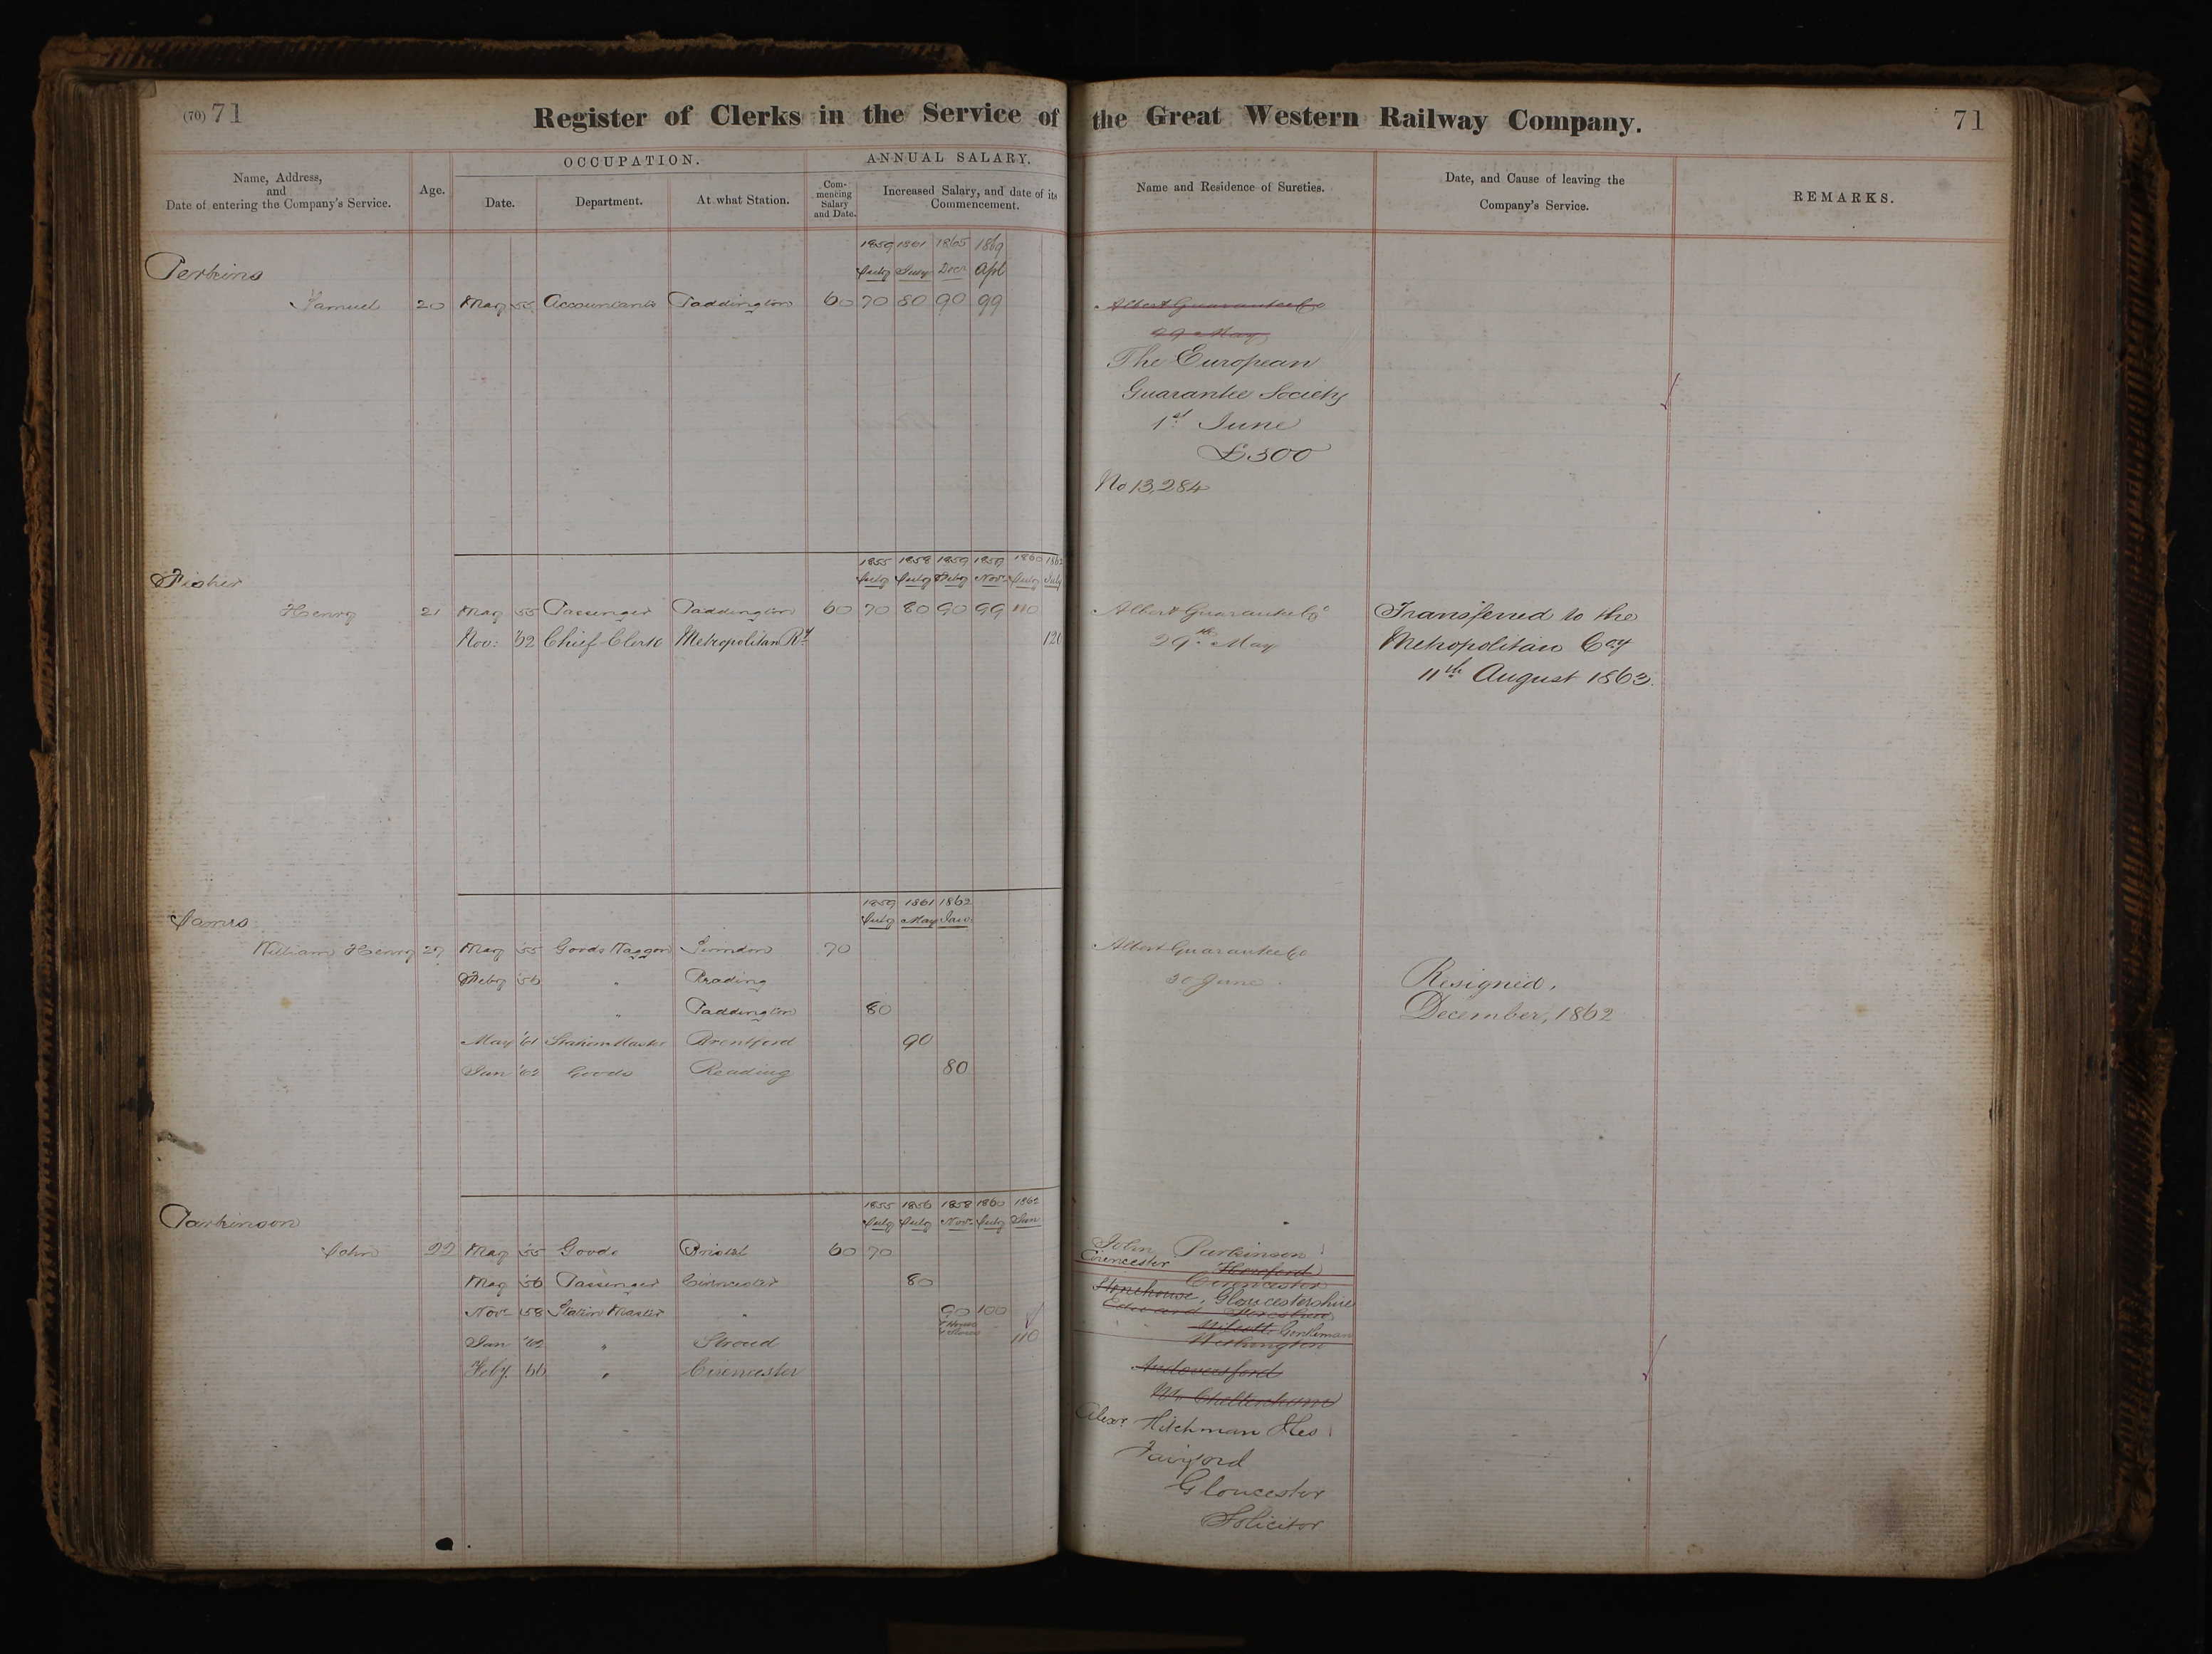 (70) 71
Register of Clerks in the Service of the Great Western Railway Company.
71
Name, Address, and Date of entering the Company's Service.
Age.
OCCUPATION.
Date.
Department.
At what Station.
ANNUAL SALARY.
Commencing Salary and Date.
Increased Salary, and date of its Commencement.
Name and Residence of Sureties.
Date, and Cause of leaving the Company's Service.
REMARKS.
1859 1861 1865 1869
Perkins July July Decr Apl
Samuel 20 May 55 Accountants Paddington 60 70 80 90 99 Albert Guarantee Co
29 May
The European
Guarantee Society
1st June
£500
No 13,284
1855 1858 1859 1859 1860 1862
Fisher July July Feby Novr July July
Henry 21 May 55 Passenger Paddington 60 70 80 90 99 110 Albert Guarantee Co Transferred to the
Nov: 62 Chief Clerk Metropolitan Ry 120 29th May Metropolitan Coy
11th August 1863.
1859 1861 1862
James July May Jan
William Henry 27 May 55 Goods Waggon Swindon 70 Albert Guarantee Co
Feby 56 " Reading 30 June Resigned,
" Paddington 80 December, 1862
May '61 Station Master Brentford 90
Jan '62 Goods Reading 80
1855 1856 1858 1860 1862
Parkinson July July Novr July Jan
John 22 May 55 Goods Bristol 60 70 John Parkinson
Cirencester Hereford
May 56 Passenger Cirencester 80 Cirencester
Stonehouse, Gloucestershire
Novr 58 Station Master " 90 100 Edward
Gentleman
Jan '62 " Stroud 110 Withington
Feby. 66 " Cirencester Andoversford
Nr Cheltenham
Alexr Hitchman Iles
Fairford
Gloucester
Solicitor